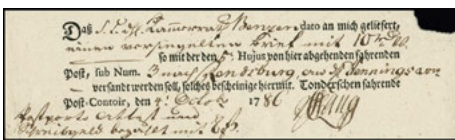 Daß S. T. H. Kammerrat Benzen dato an mich geliefert,
einen versiegelten Brief mit 10 rh
so mit der den 5t Hujus von hier abgehenden fahrenden
Post, sub Num. 3 nach Rendsburg, an
versandt werden soll, solches bescheinige hiermit. Tondersche fahrende
Post-Contoir, den 4t Octob 1786
Postporto Attest und
Schreibgeld bezahlt mit 6ß